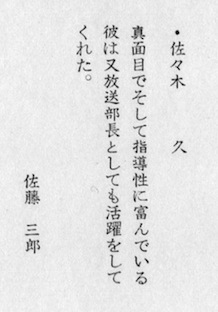 ・佐々木　久
真面目でそして指導性に富んでいる
彼は又放送部長としても活躍をして
くれた。
佐藤　三郎